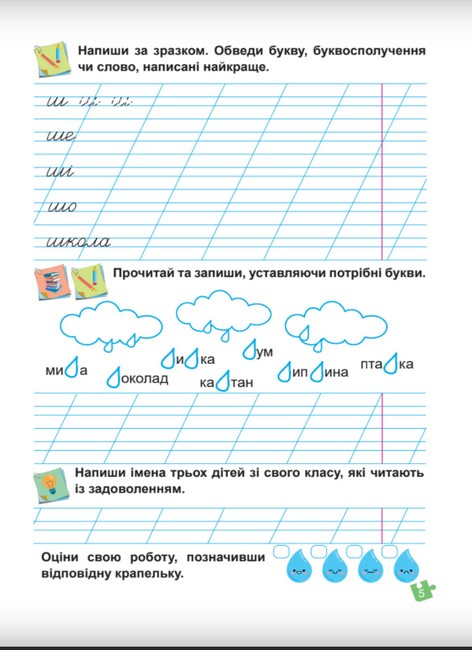 Напиши за зразком. Обведи букву, буквосполучення
чи слово, написані найкраще.
ш ш ш
ше
ші
шо
школа
Прочитай та запиши, уставляючи потрібні букви.
ми а
околад
и ка
ка тан
ум
ип ина
пта ка
Напиши імена трьох дітей зі свого класу, які читають
із задоволенням.
Оціни свою роботу, позначивши
відповідну крапельку.
5